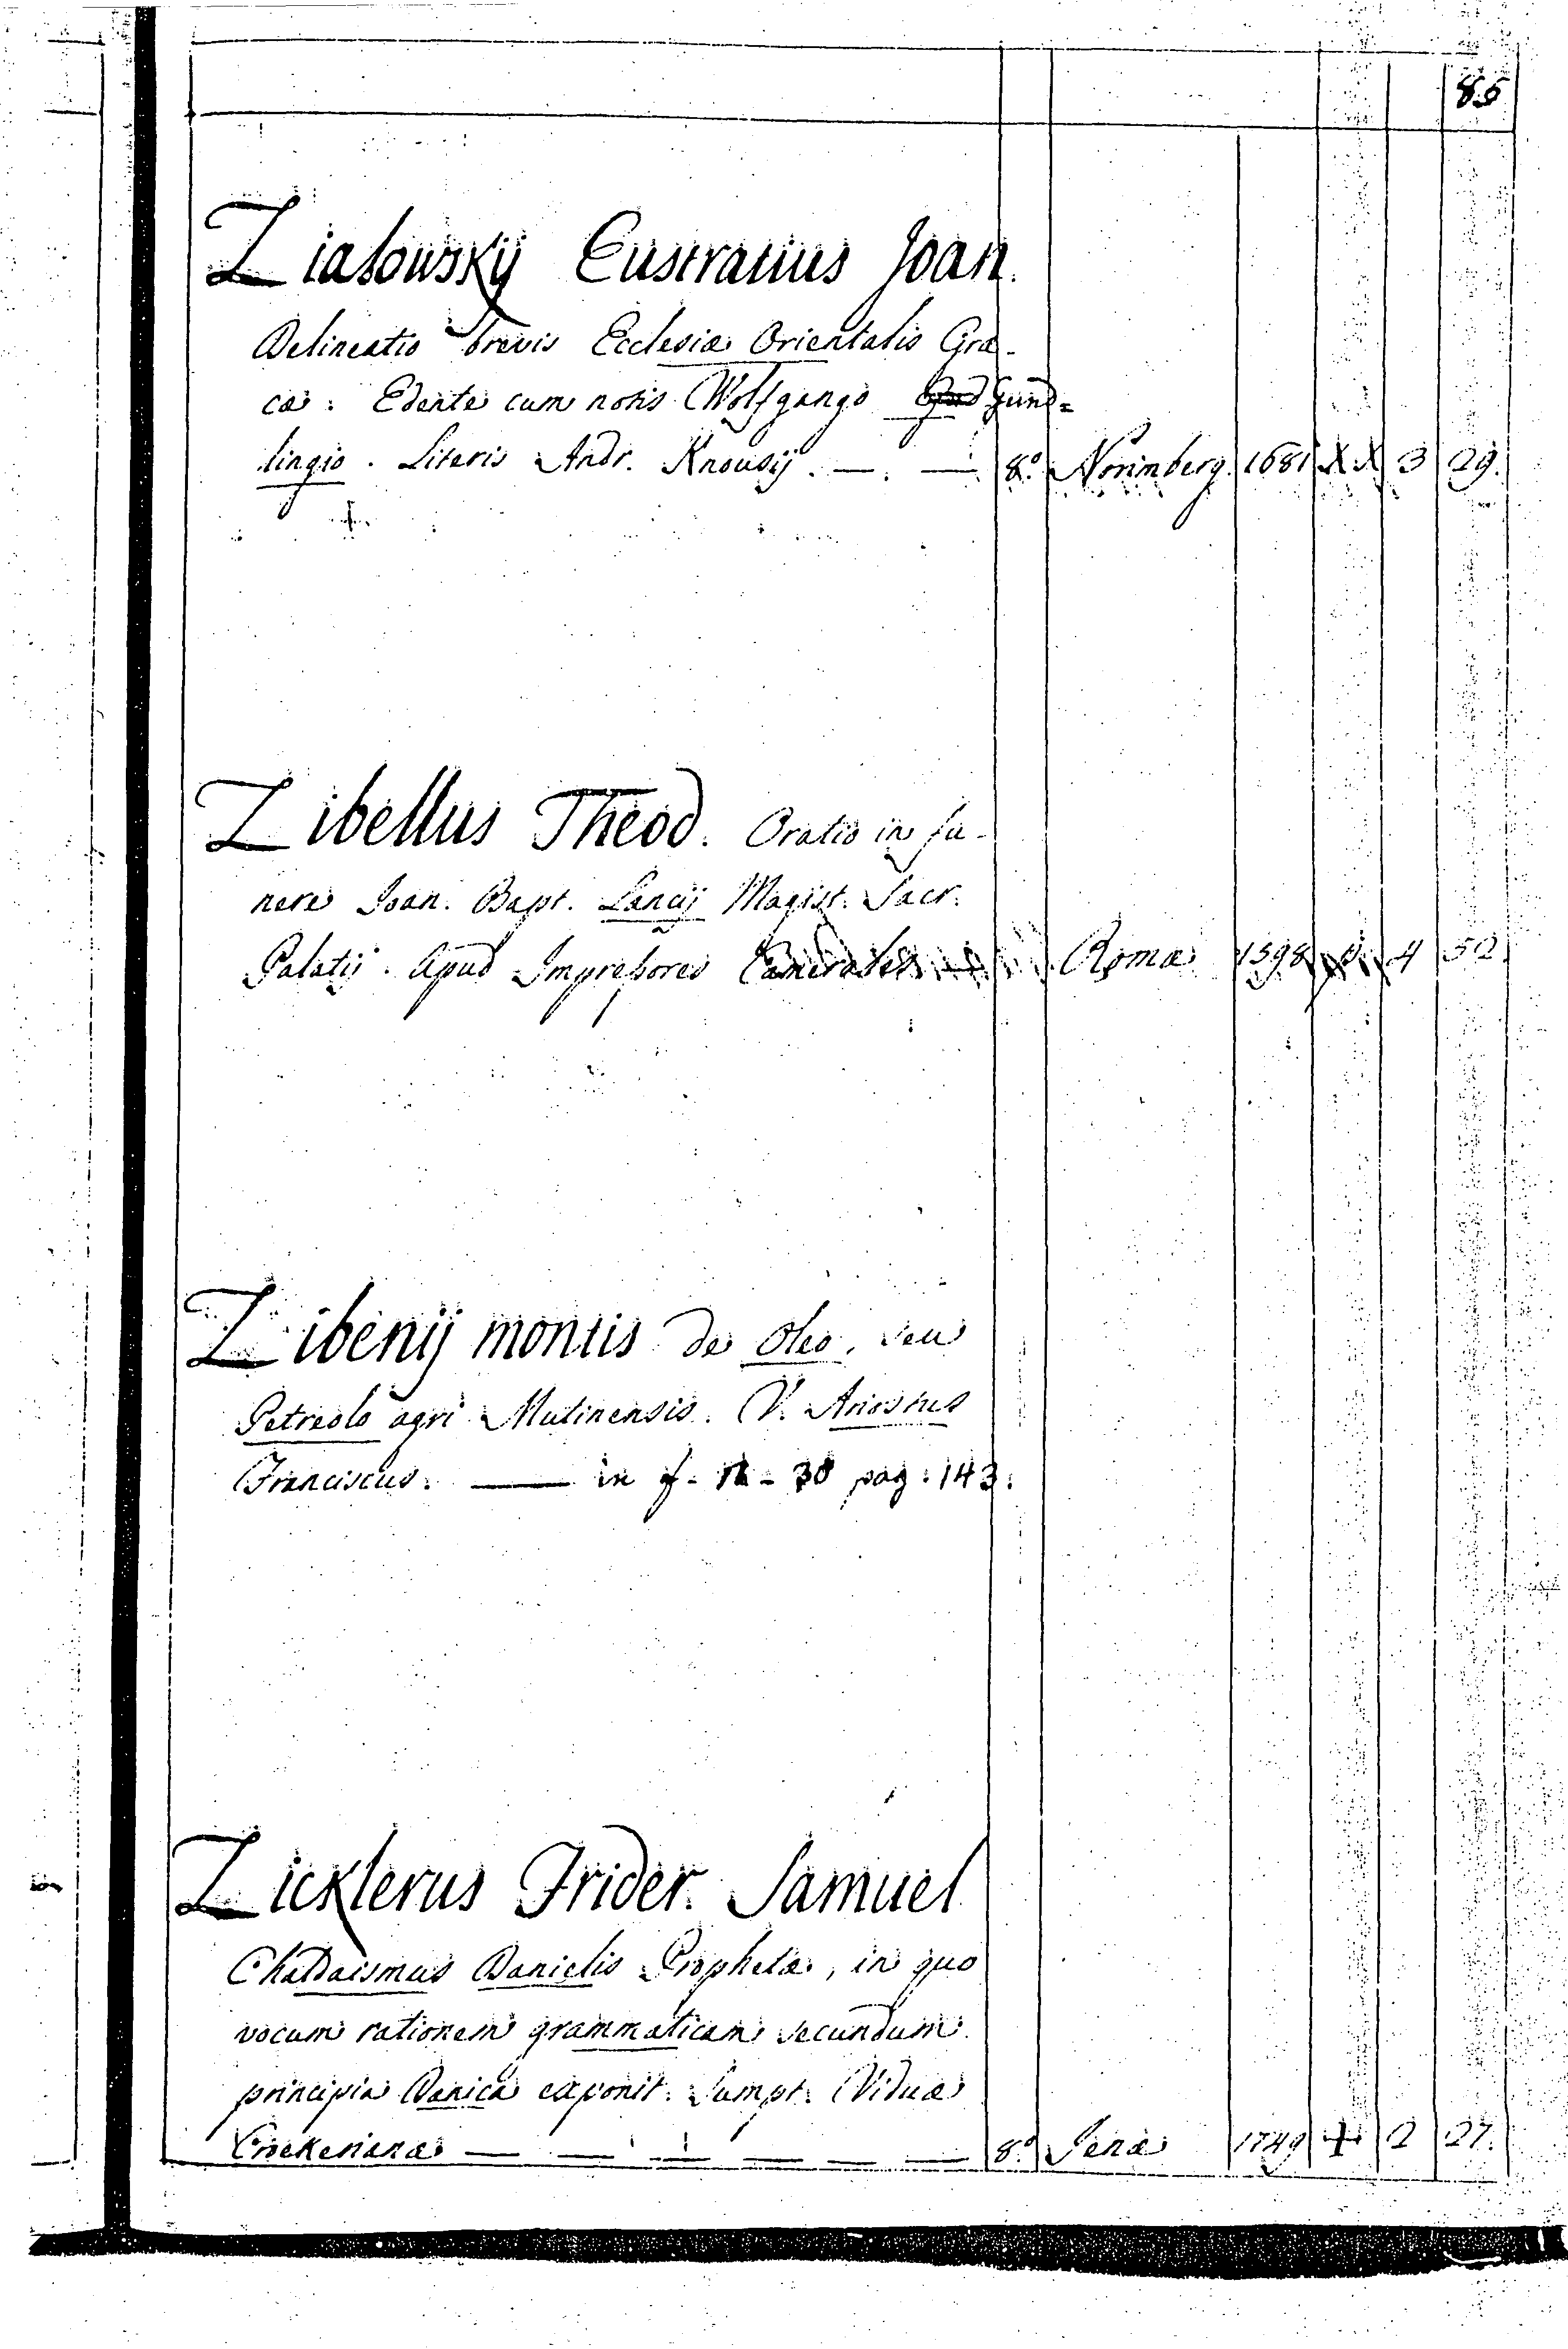 85
Zialowskij Eustratius Joan.
Delineatio brevis Ecclesiæ Orientalis Græ-
cæ. Edente cum notis Wolfgango Gund=
lingio. Literis Andr. Knousij. — . — 8.º Norimberg. 1681 X X 3 29.
Zibellus Theod. Oratio in fu-
nere Joan. Bapt. Lancij Magist. Sacr.
Palatij. Apud Impressores Camerales Romæ 1598 4 52
Zibenij montis de Oleo, seu
Petreolo agri Mutinensis. V. Ariostus
Franciscus. — in pag: 143.
Zicklerus Frider. Samuel
Chaldaismus Danielis Prophetæ, in quo
vocum rationem grammaticam secundum
principia Danica exponit. Sumpt. Viduæ
Croekerianæ — — — — — — 8.º Jenæ 1749 + 2 27.